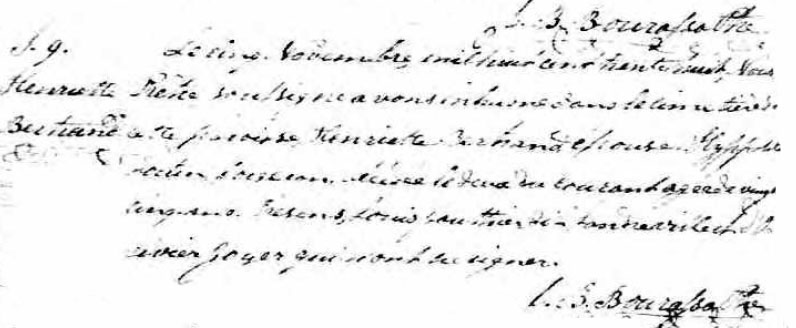 L. B. Bourassa Ptre
S. 9. Le cinq Novembre mil huit cent trente huit, Nous
Henriette Prêtre soussigné avons inhumé dans le cimetière de
Bertrand cette paroisse, Henriette Bertrand Epouse Hyppolite
décédée le deux du courant agée de vingt
cinq ans. Présens, Louis
Olivier Goyer qui n'ont su signer.
L. B. Bourassa Ptre